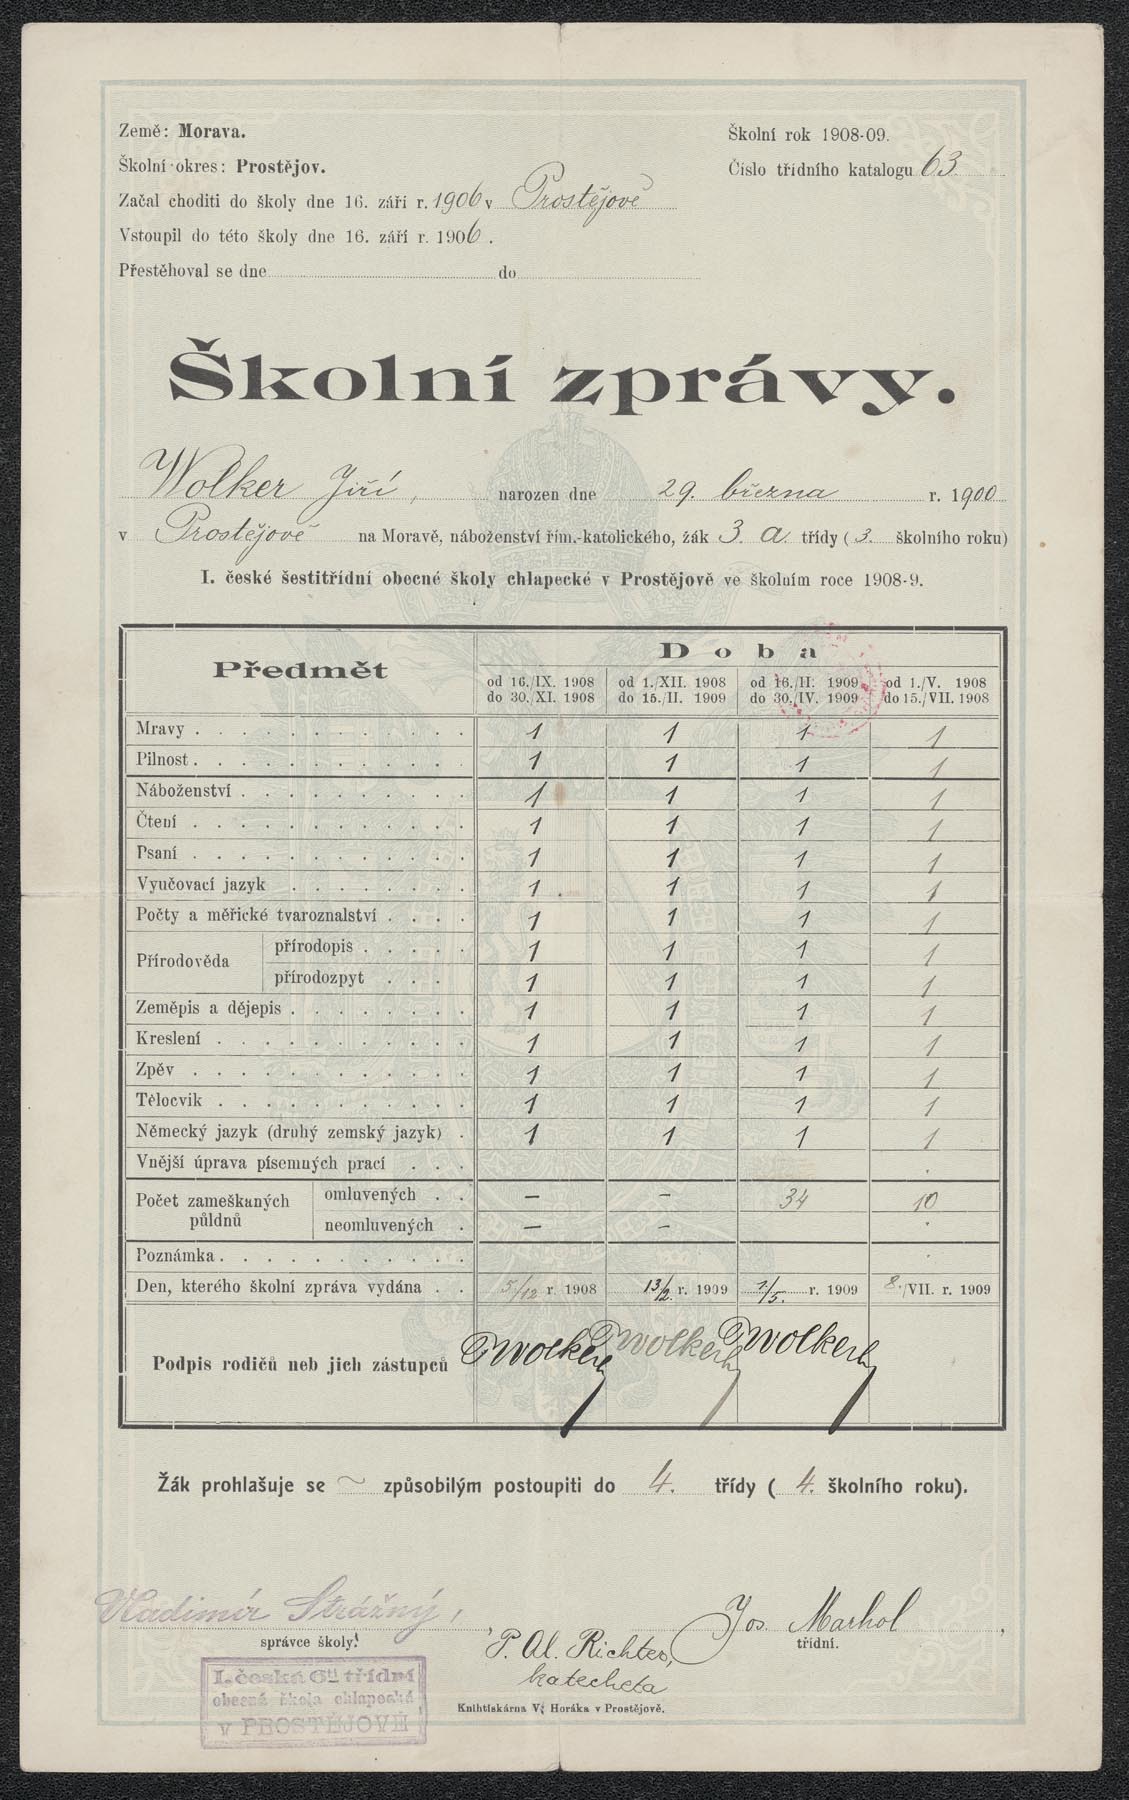 Země: Morava.
Školní rok 1908-09.
Školní okres: Prostějov.
Číslo třídního katalogu 63
Začal choditi do školy dne 16. září r. 1906 v Prostějově
Vstoupil do této školy dne 16. září r. 1906.
Přestěhoval se dne do
Školní zprávy.
Wolker Jiří, narozen dne 29. března r. 1900
v Prostějově na Moravě, náboženství řím.-katolického, žák 3. a. třídy (3. školního roku)
I. české šestitřídní obecné školy chlapecké v Prostějově ve školním roce 1908-9.
Předmět Doba
od 16./IX. 1908 od 1./XII. 1908 od 16./II. 1909 od 1./V. 1908
do 30./XI. 1908 do 15./II. 1909 do 30./IV. 1909 do 15./VII. 1908
Mravy 1 1 1 1
Pilnost 1 1 1 1
Náboženství 1 1 1 1
Čtení 1 1 1 1
Psaní 1 1 1 1
Vyučovací jazyk 1 1 1 1
Počty a měřické tvaroznalství 1 1 1 1
Přírodověda přírodopis 1 1 1 1
přírodozpyt 1 1 1 1
Zeměpis a dějepis 1 1 1 1
Kreslení 1 1 1 1
Zpěv 1 1 1 1
Tělocvik 1 1 1 1
Německý jazyk (druhý zemský jazyk) 1 1 1 1
Vnější úprava písemných prací
Počet zameškaných půldnů omluvených – – 34 10
neomluvených – –
Poznámka
Den, kterého školní zpráva vydána 5/12 r. 1908 13/2 r. 1909 1/5. r. 1909 8./VII. r. 1909
Podpis rodičů neb jich zástupců Wolker Wolker Wolker
Žák prohlašuje se ~ způsobilým postoupiti do 4. třídy (4. školního roku).
Vladimír Strážný,
správce školy.
P. Al. Richter,
katecheta
Jos. Marhol
třídní.
I. česká 6ti třídní
obecná škola chlapecká
v PROSTĚJOVĚ
Knihtiskárna V. Horáka v Prostějově.